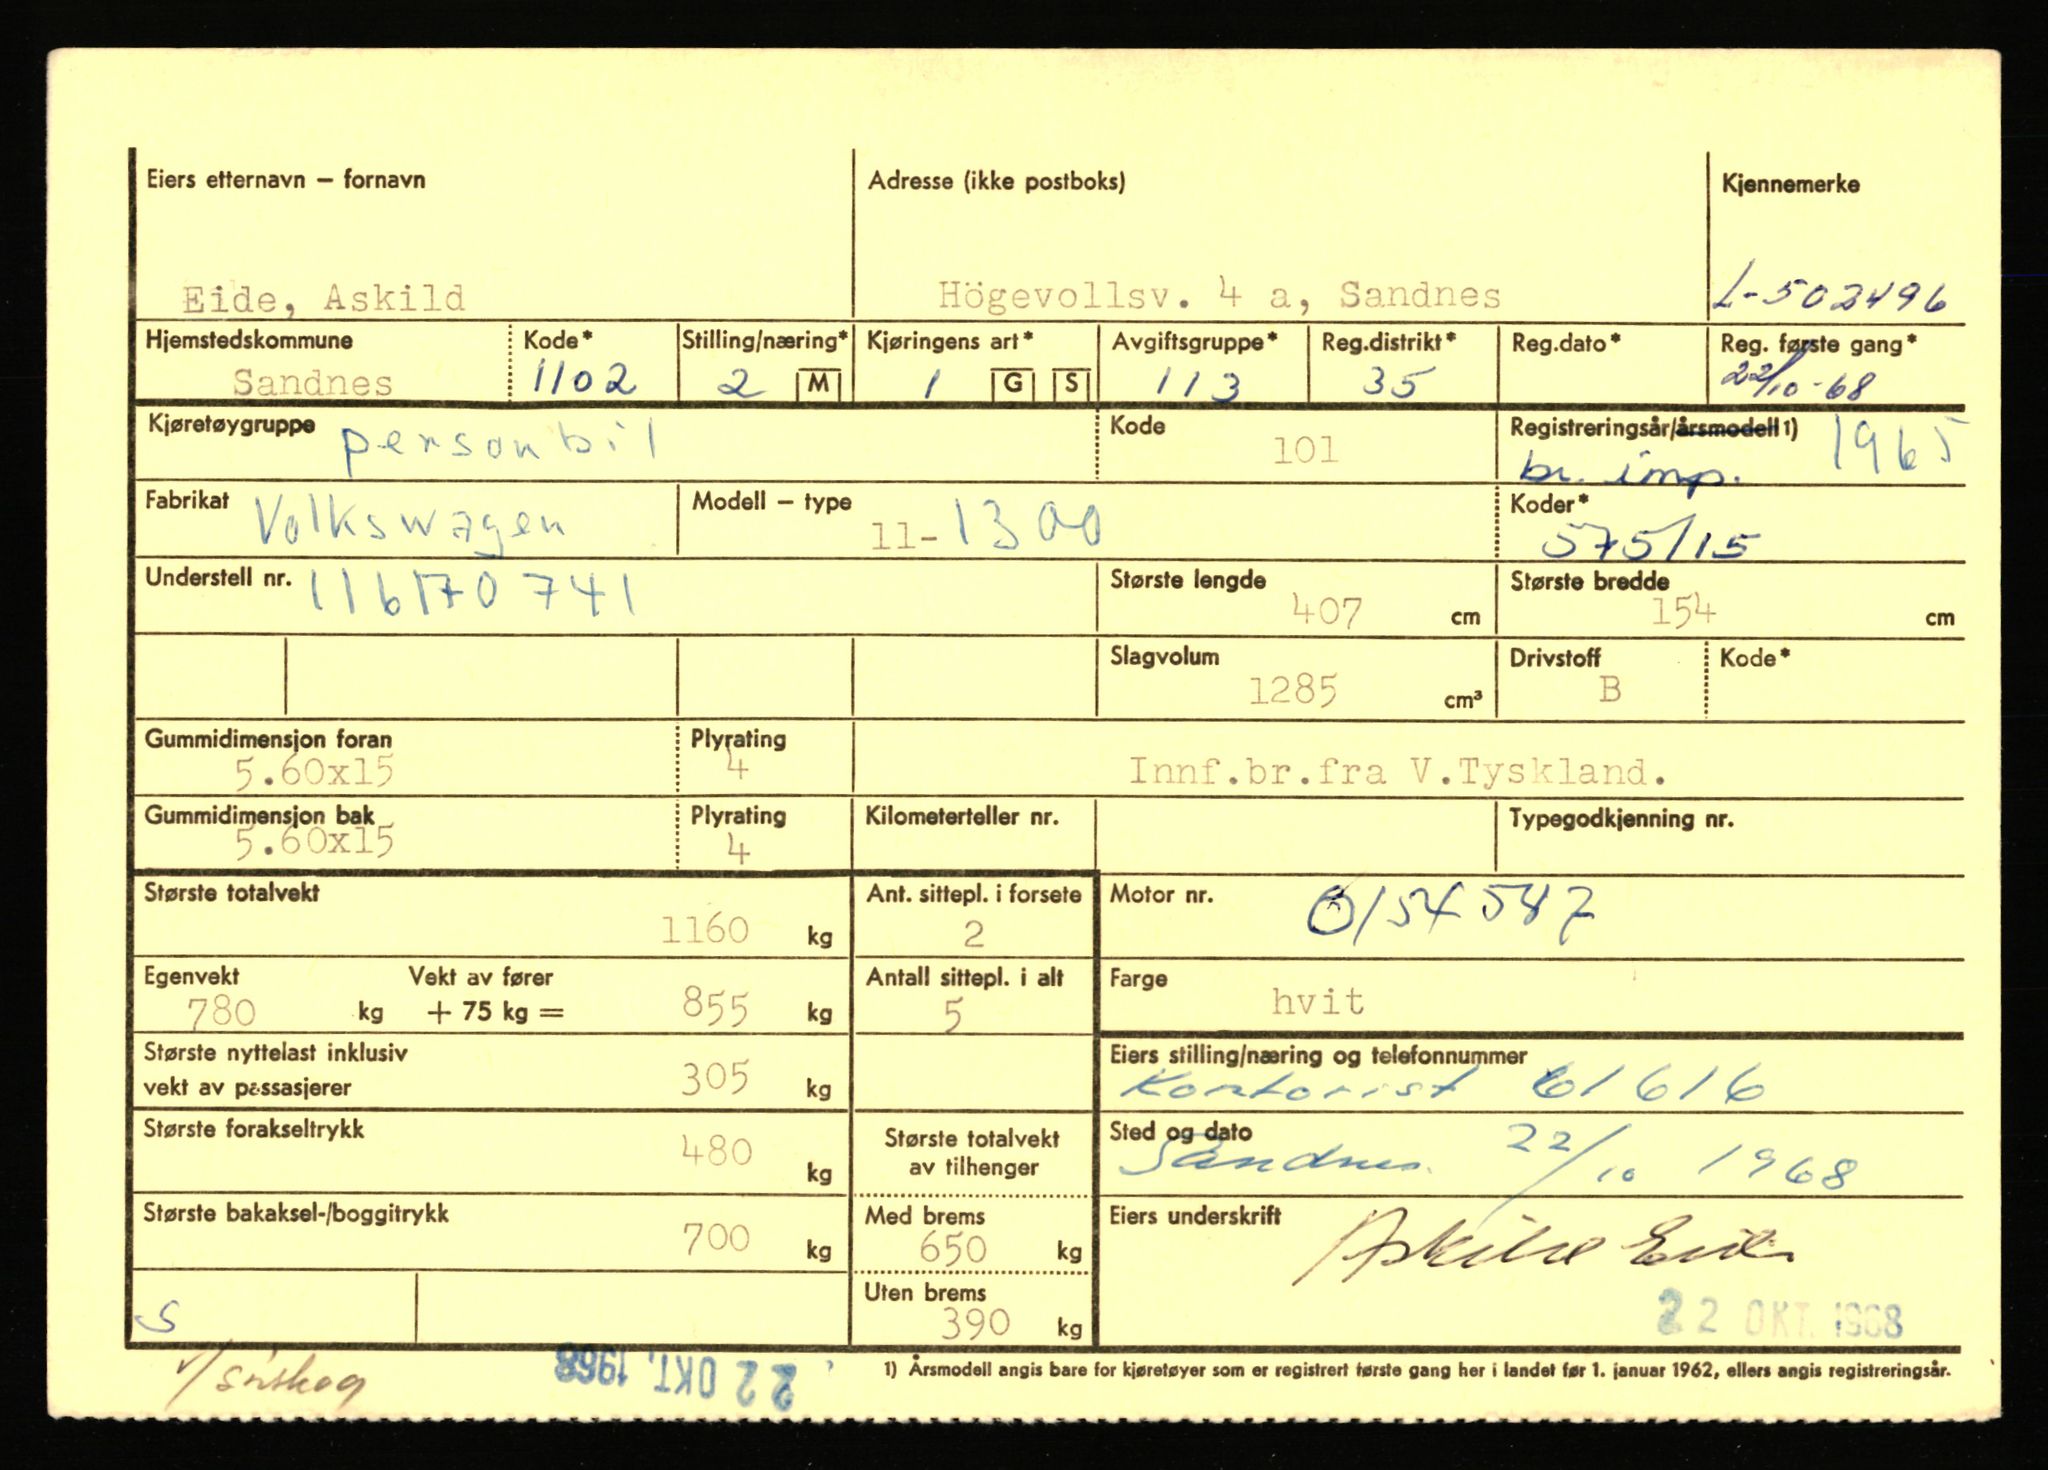 Eiers etternavn – fornavn Adresse (ikke postboks) Kjennemerke
Eide, Askild Högevollsv. 4 a, Sandnes L-502496
Hjemstedskommune Kode* Stilling/næring* Kjøringens art* Avgiftsgruppe* Reg.distrikt* Reg.dato* Reg. første gang*
Sandnes 1102 2 M 1 G S 113 35 22/10-68
Kjøretøygruppe personbil Kode 101 Registreringsår/årsmodell 1) 1965
br. imp.
Fabrikat Volkswagen Modell – type 11-1300 Koder*
575/15
Understell nr. 116170741 Største lengde Største bredde
407 cm 154 cm
Slagvolum Drivstoff Kode*
1285 cm³ B
Gummidimensjon foran Plyrating
5.60x15 4 Innf.br.fra V.Tyskland.
Gummidimensjon bak Plyrating Kilometerteller nr. Typegodkjenning nr.
5.60x15 4
Største totalvekt Ant. sittepl. i forsete Motor nr. 0154547
1160 kg 2
Egenvekt Vekt av fører Antall sittepl. i alt Farge
780 kg + 75 kg = 855 kg 5 hvit
Største nyttelast inklusiv Eiers stilling/næring og telefonnummer
vekt av passasjerer 305 kg Kontorist 61616
Største forakseltrykk Største totalvekt Sted og dato
480 kg av tilhenger Sandnes 22/10 1968
Største bakaksel-/boggitrykk Med brems Eiers underskrift
700 kg 650 kg Askild Eide
Uten brems
S 390 kg 22 OKT. 1968
22 OKT. 1968 1) Årsmodell angis bare for kjøretøyer som er registrert første gang her i landet før 1. januar 1962, ellers angis registreringsår.